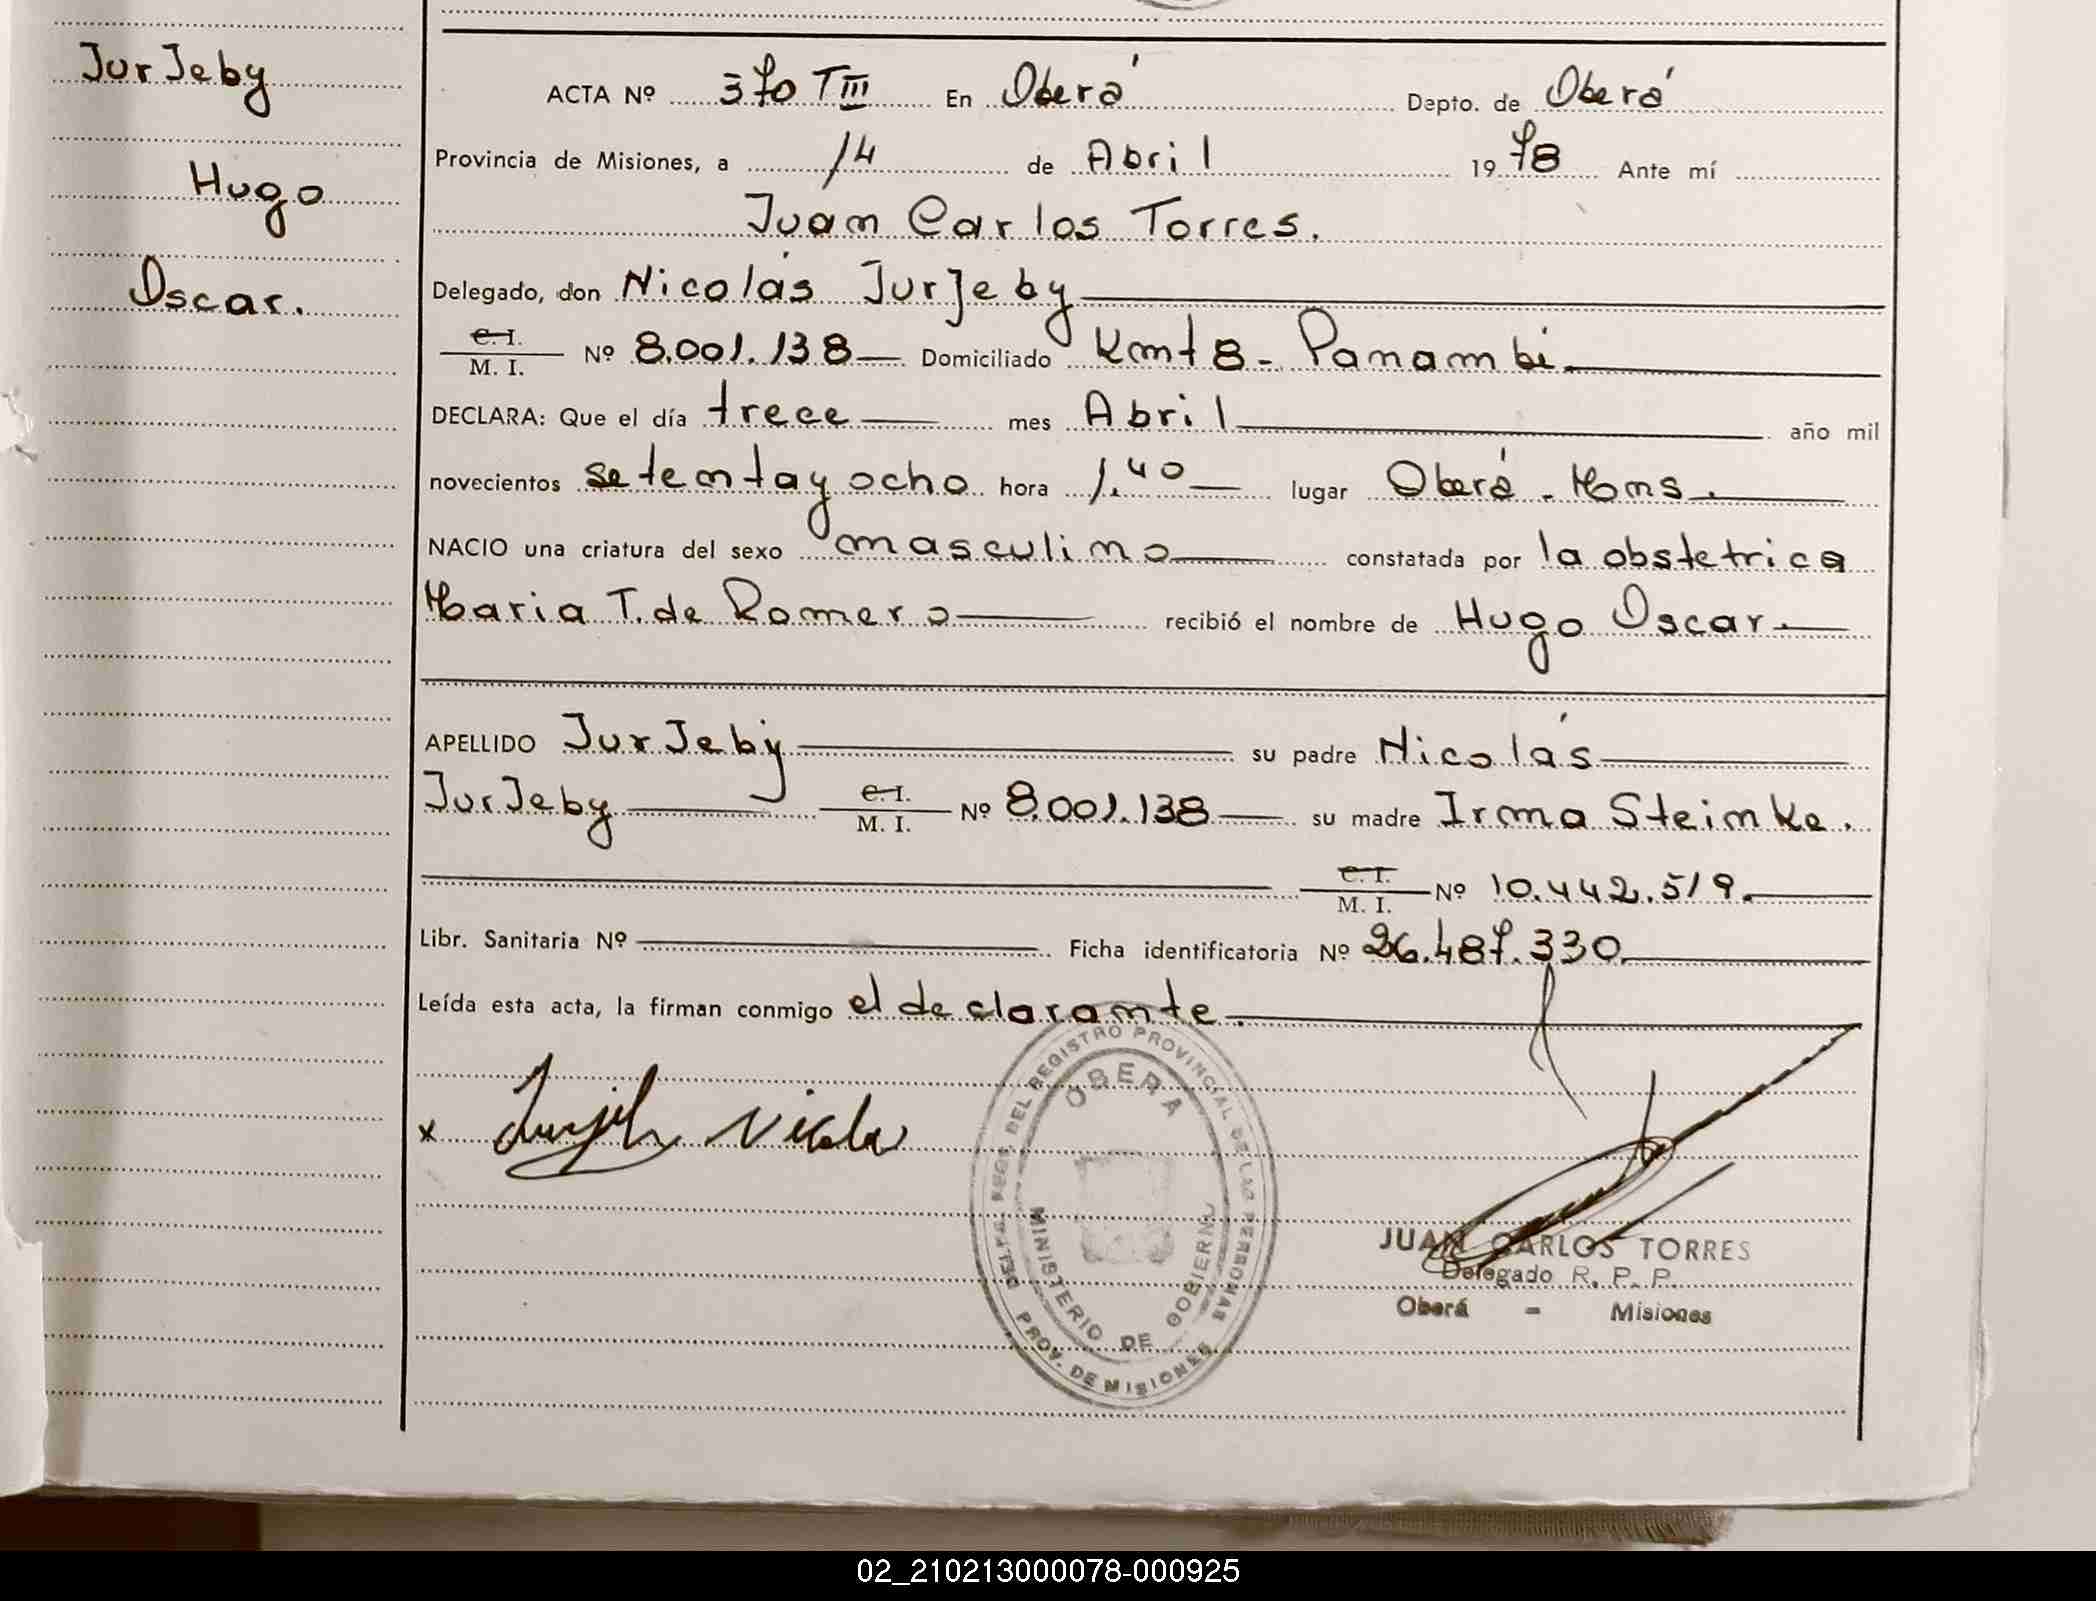 JurJeby
Hugo
Oscar.
ACTA Nº 370 TIII En Oberá Depto. de Oberá
Provincia de Misiones, a 14 de Abril 1978 Ante mí
Juan Carlos Torres.
Delegado, don Nicolás JurJeby
C. I.
M. I. Nº 8.001.138 Domiciliado Kmt 8 - Panambi.
DECLARA: Que el día trece mes Abril año mil
novecientos setenta y ocho hora 1.40 lugar Oberá - Mnes.
NACIO una criatura del sexo masculino constatada por la obstetrica
Maria T. de Romero recibió el nombre de Hugo Oscar.
APELLIDO JurJeby su padre Nicolás
JurJeby C. I. M. I. Nº 8.001.138 su madre Irma Steinke.
C. I. M. I. Nº 10.442.519.
Libr. Sanitaria Nº Ficha identificatoria Nº 26.487.330.
Leída esta acta, la firman conmigo el declarante.
x
DEL REGISTRO PROVINCIAL DE LAS PERSONAS
OBERA
MINISTERIO DE GOBIERNO
PROV. DE MISIONES
JUAN CARLOS TORRES
Delegado R. P. P.
Oberá - Misiones
02_210213000078-000925